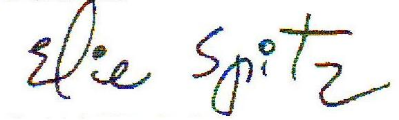 Elie Spitz